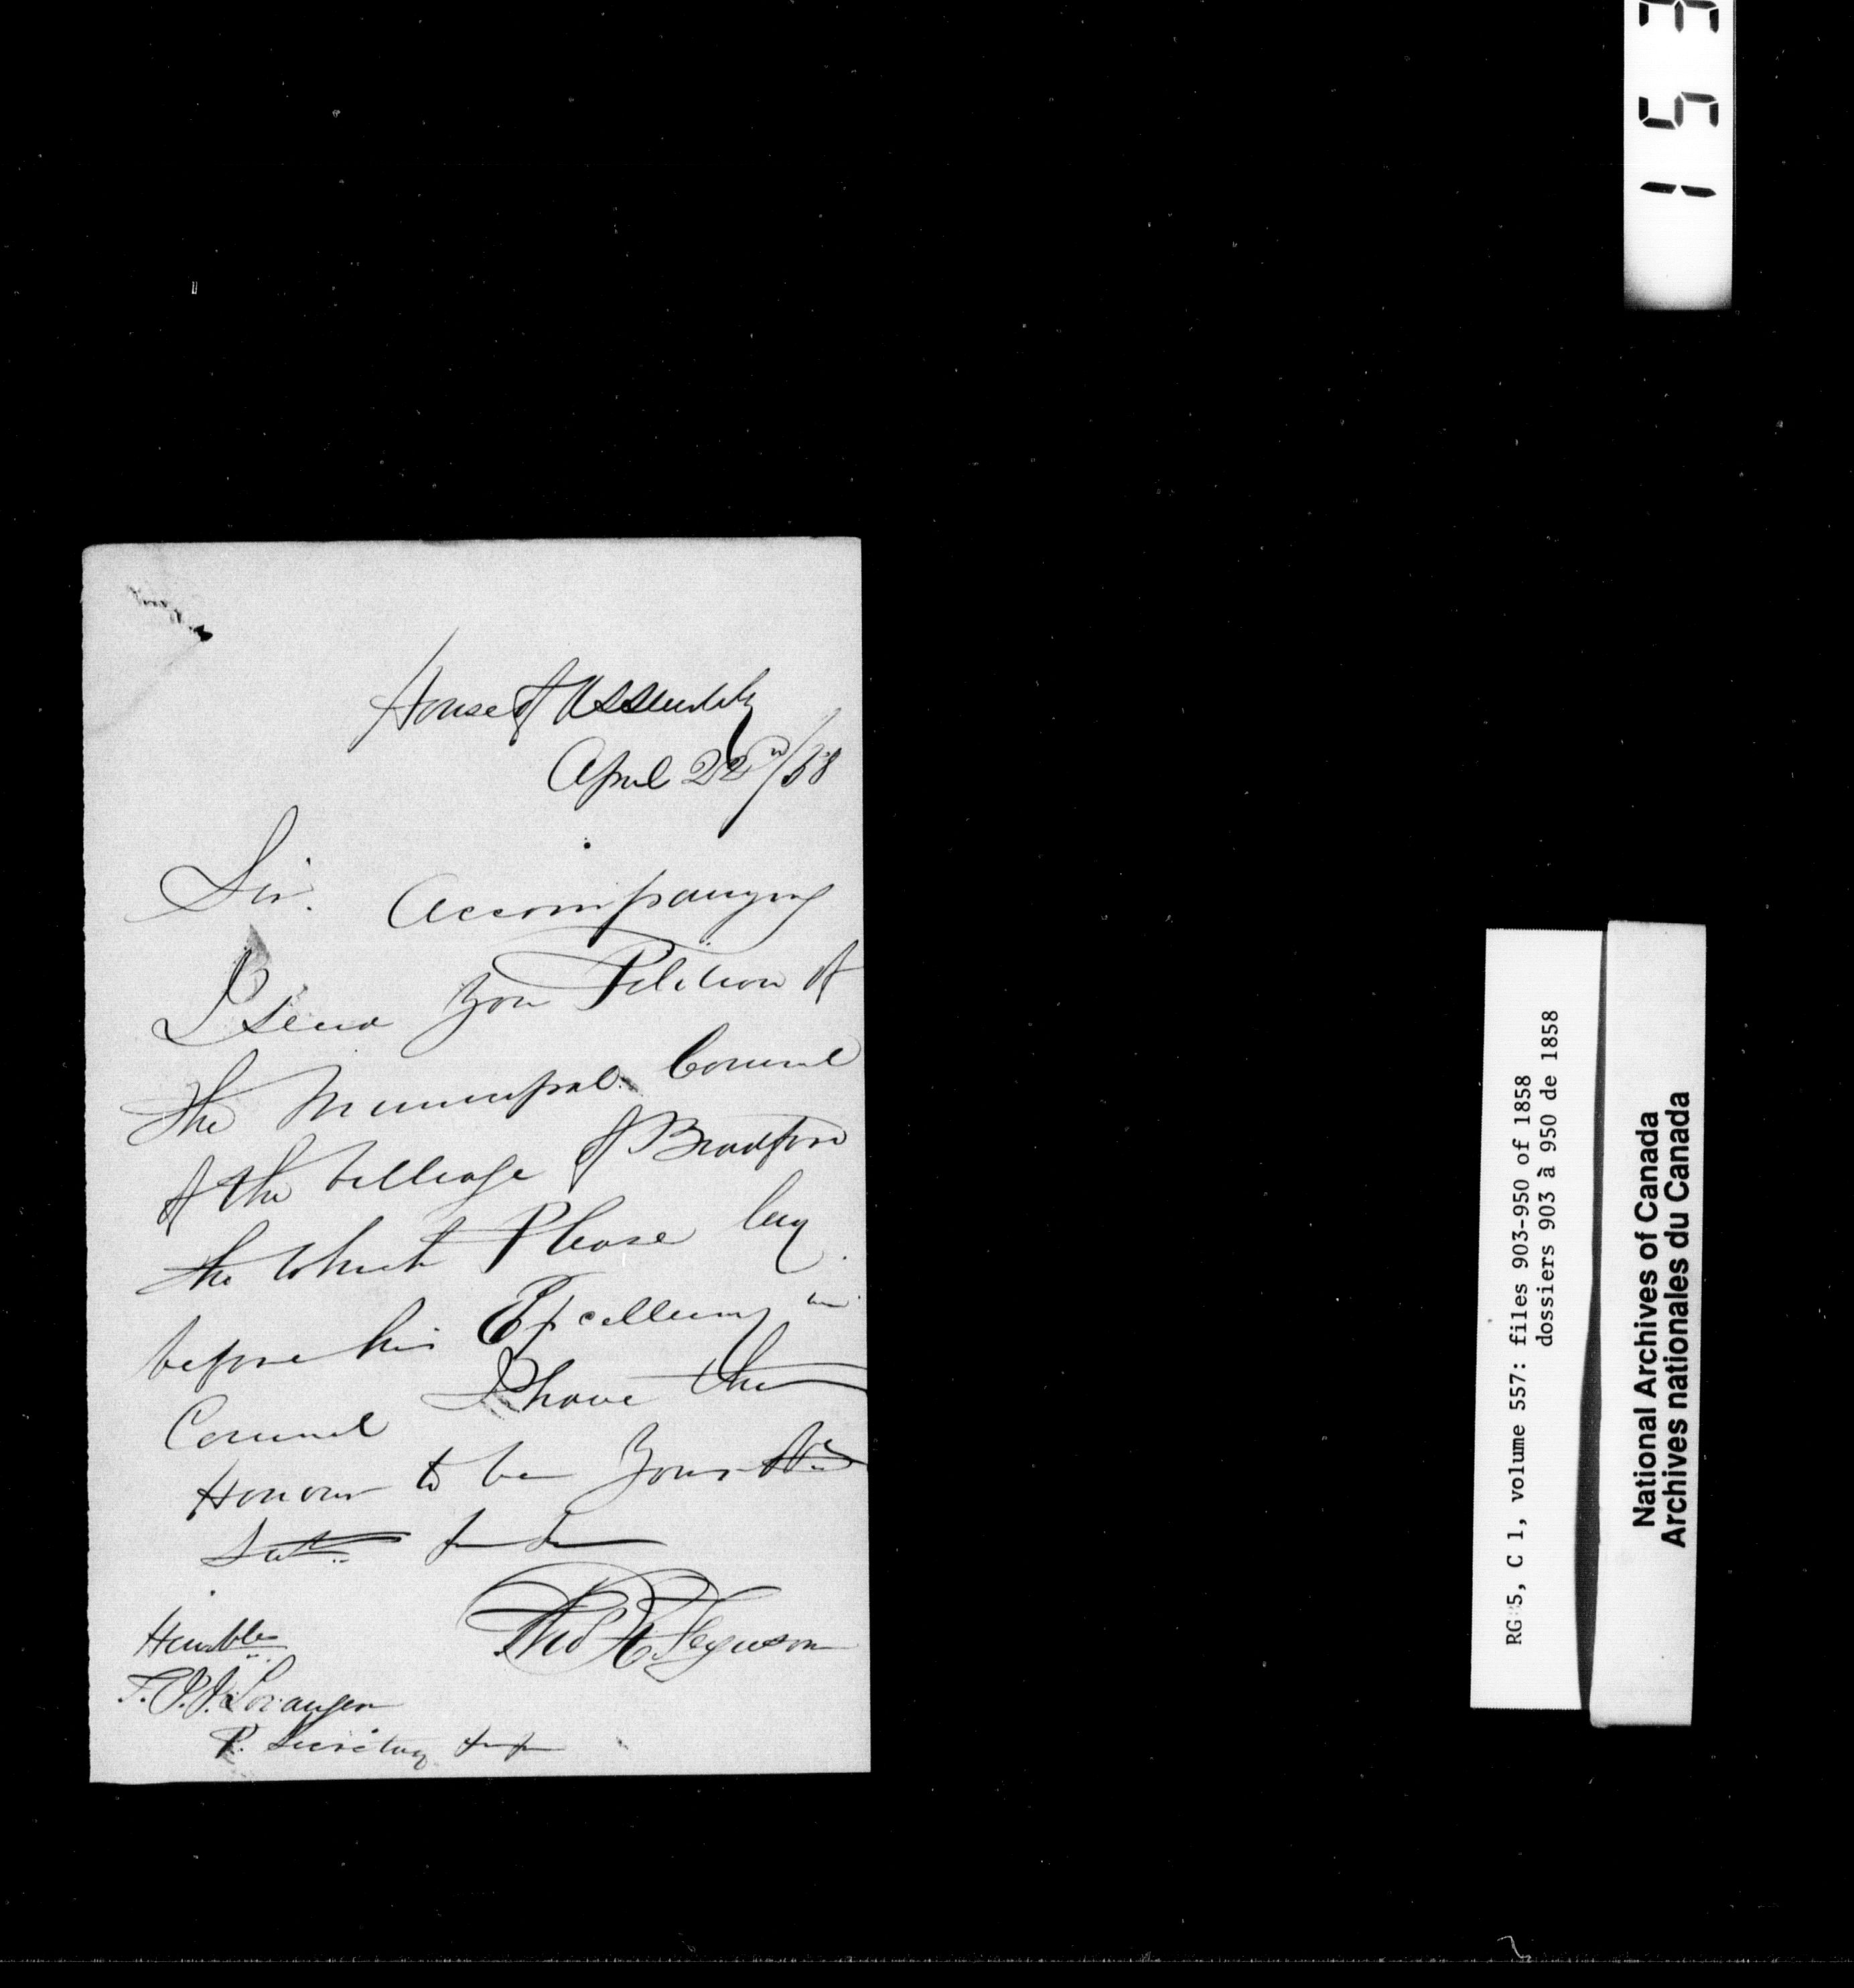 House of Assembly
April 22n/58
Sir. Accompanying
I send you Petition of
the Municipal Council
of the Village of Bradford
the which Please lay
before his Excellency in
Council I have the
Honour to be Your
Thos R Ferguson
Humble
T. J. J. Loranger
P. Secretary
153
RG 5, C 1, volume 557: files 903-950 of 1858
dossiers 903 à 950 de 1858
National Archives of Canada
Archives nationales du Canada